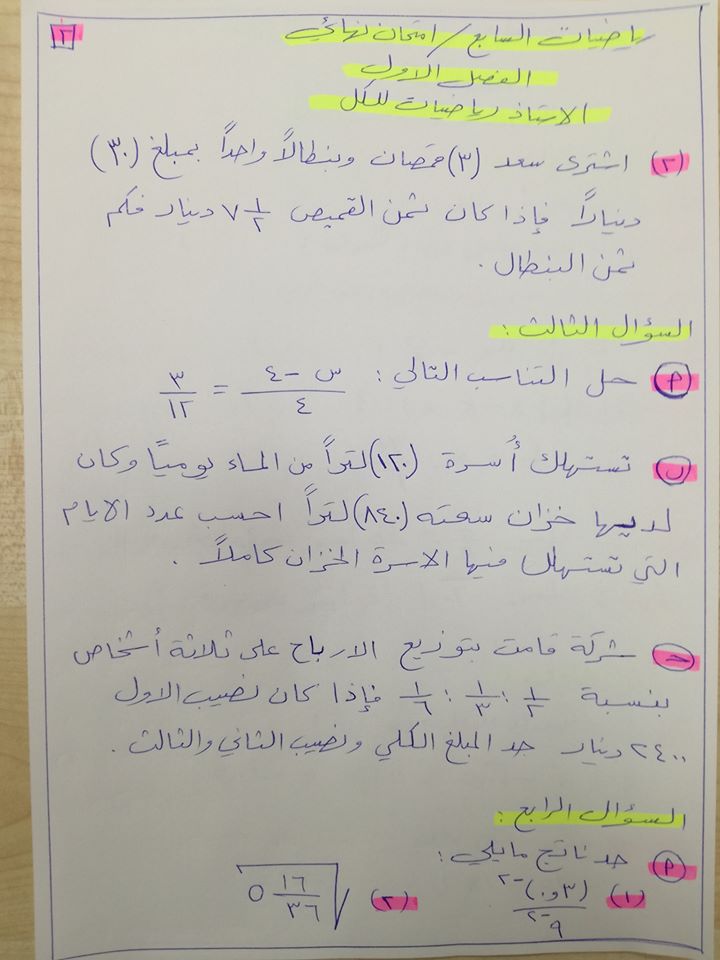 ٢
رياضيات السابع / امتحان نهائي
الفصل الاول
الاستاذ رياضيات للكل
(٢) اشترى سعد (٣) قمصان وبنطالاً واحداً بمبلغ (٣٠)
ديناراً فإذا كان ثمن القميص ٧ ١/٢ دينار فكم
ثمن البنطال .
السؤال الثالث :
(أ) حل التناسب التالي : (س - ٤)/٤ = ٣/١٢
(ب) تستهلك أُسرة (١٢٠) لتراً من الماء يومياً وكان
لديها خزان سعته (٨٤٠) لتراً احسب عدد الايام
التي تستهلك فيها الاسرة الخزان كاملاً .
(ج) شركة قامت بتوزيع الارباح على ثلاثة أشخاص
بنسبة ١/٢ : ١/٣ : ١/٦ فإذا كان نصيب الاول
٢٤٠٠ دينار جد المبلغ الكلي ونصيب الثاني والثالث .
السؤال الرابع :
(أ) جد ناتج مايلي :
(١) (٣و٠)⁻² / ٩⁻² (٢) √(٥ ١٦/٣٦)